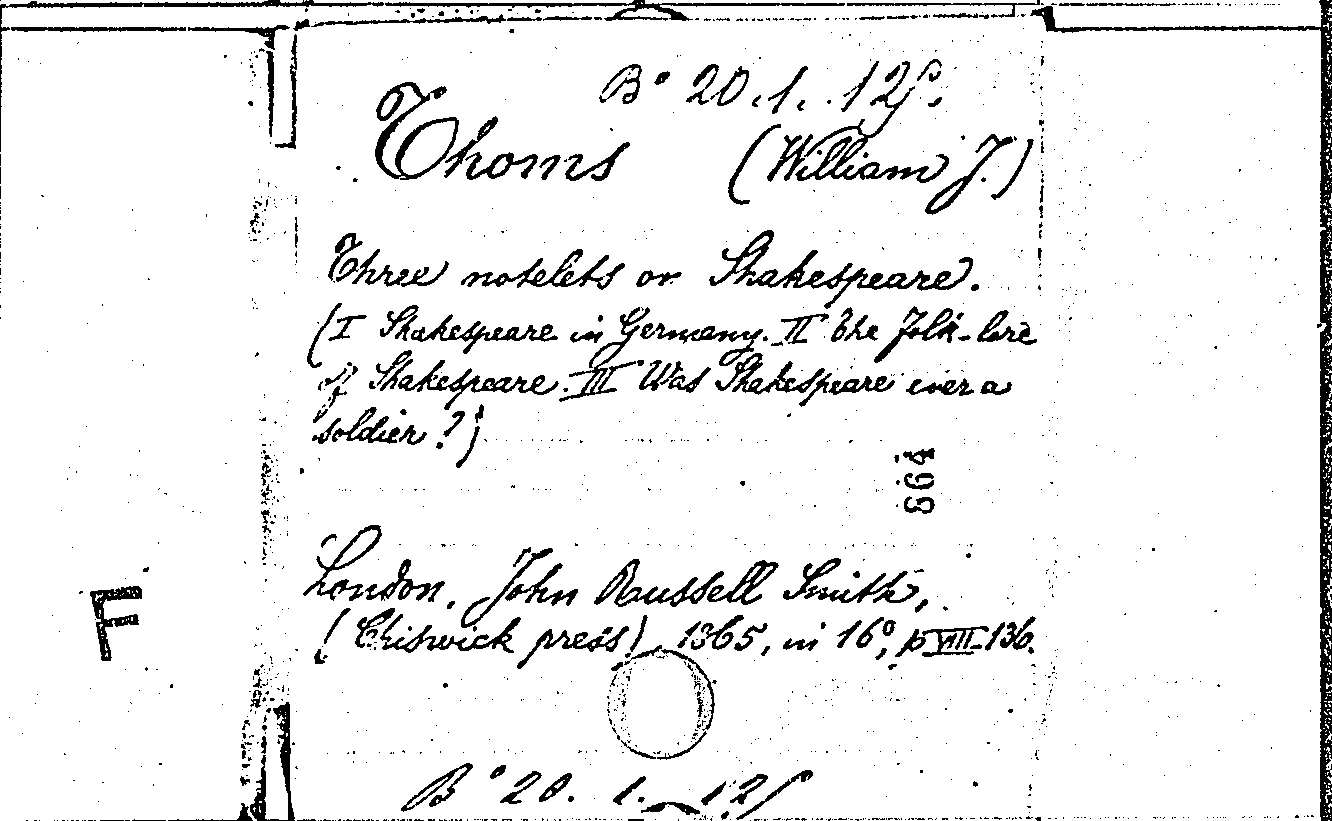 B° 20.1.12f.
Thoms (William J.)
Three notelets on Shakespeare.
(I Shakespeare in Germany. II The Folk-lore
of Shakespeare. III Was Shakespeare ever a
soldier?)
864
London, John Russell Smith,
(Chiswick press), 1865, in 16°, p VIII-136.
F
B° 20. 1. 12f